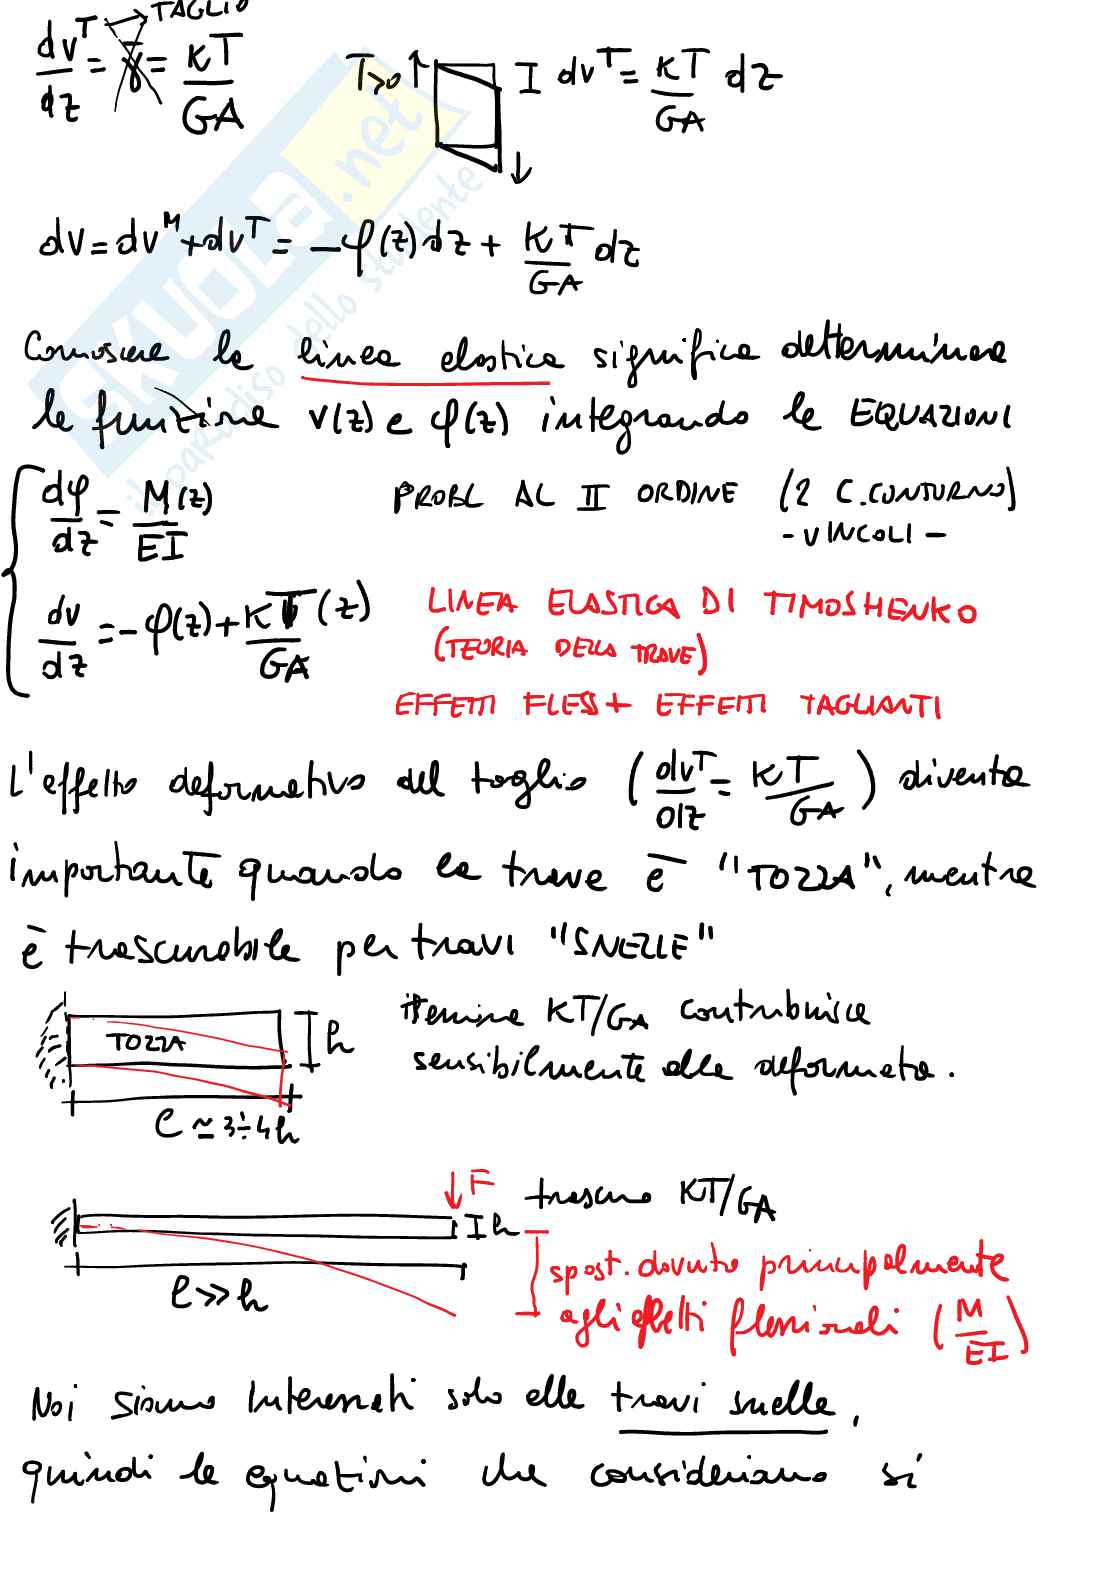 TAGLIO
dv^T/dz = γ = KT/GA
T>0 dv^T = KT/GA dz
dv = dv^M + dv^T = -φ(z)dz + KT/GA dz
Conoscere la linea elastica significa determinare
le funzione v(z) e φ(z) integrando le EQUAZIONI
dφ/dz = M(z)/EI PROBL AL II ORDINE (2 C.CONTORNO)
- VINCOLI -
dv/dz = -φ(z) + KT(z)/GA LINEA ELASTICA DI TIMOSHENKO
(TEORIA DELLA TRAVE)
EFFETTI FLESS + EFFETTI TAGLIANTI
L'effetto deformativo del taglio (dv^T/dz = KT/GA) diventa
importante quando la trave è "TOZZA", mentre
è trascurabile per travi "SNELLE"
il termine KT/GA contribuisce
TOZZA h
sensibilmente alla deformata.
l ≃ 3÷4h
F
trascuro KT/GA
h
spost. dovuto principalmente
l >> h
agli effetti flessionali (M/EI)
Noi siamo interessati solo alle travi snelle,
quindi le equazioni che consideriamo si
SKUOLA.net
il paradiso dello studente